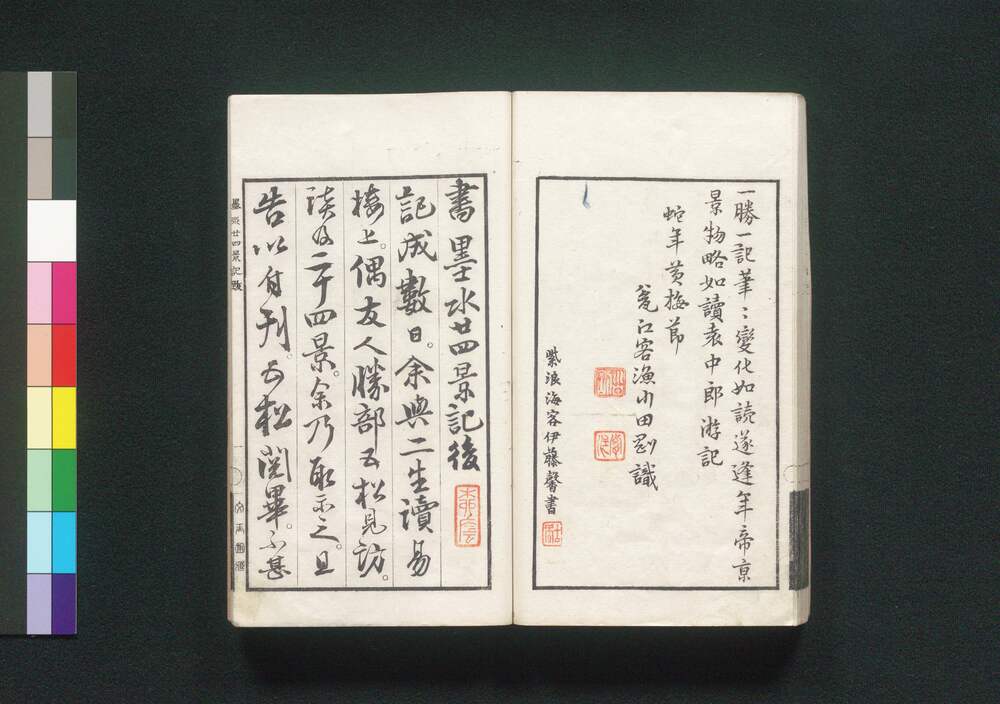 一勝一記筆〻變化如読遂逢年帝京
景物略如讀袁中郎游記
蛇年黄梅節
瓮江客漁小田 識
紫浪海客伊藤馨書
書墨水廿四景記後
記成數日。余與二生讀易
樓上。偶友人勝部五松見訪。
談及二十四景。余乃取示之。且
告以付刊。五松閲畢。不甚
墨水廿四景記跋